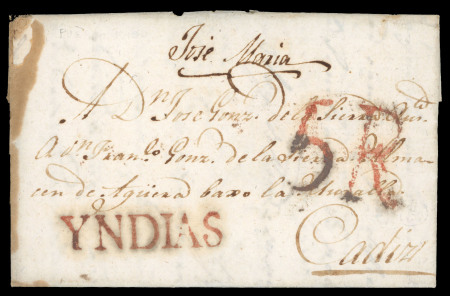 Jose Maria
A Dn. Jose Gonz. de la Sierra
A dn. Franco. Gonz. de la Sierra Alma
cen de Aguera baxo la Muralla
5R
YNDIAS
Cadiz